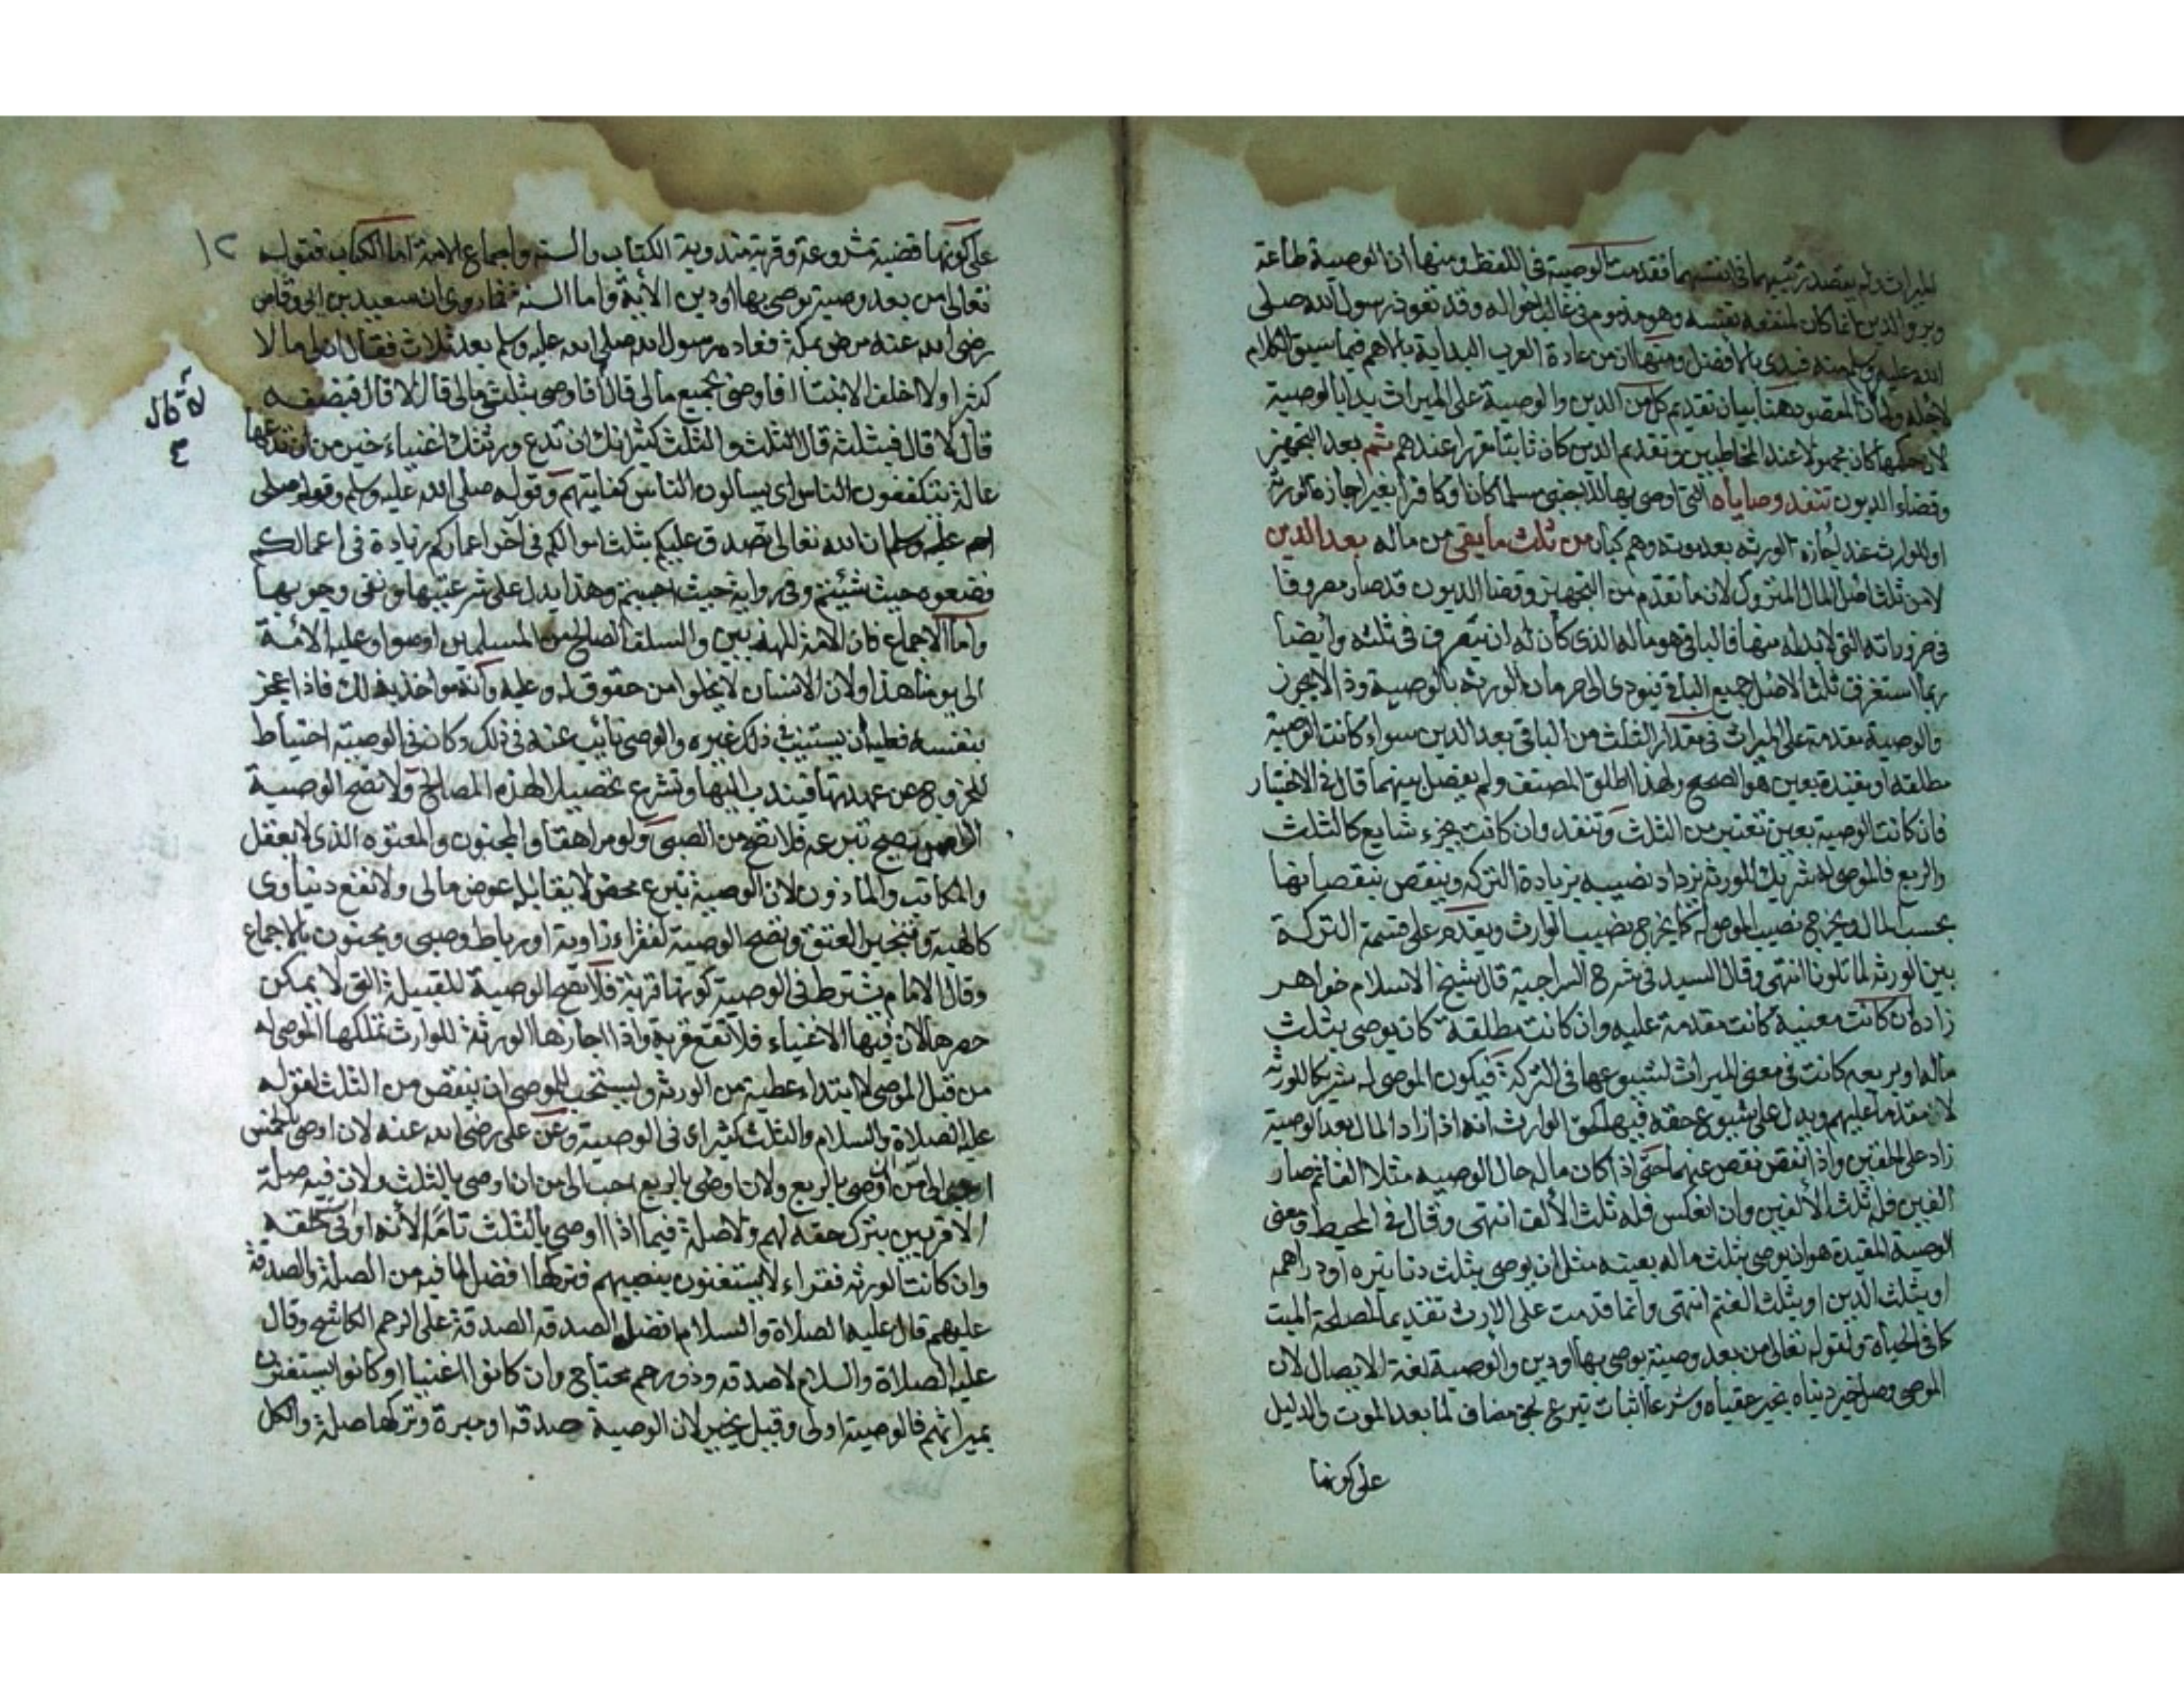 الميراث ولم يقصد ترتيبهما في انفسهما فقدمت الوصية في اللفظ ومنها ان الوصية طاعة
وبر والدين انما كان لمنفعة نفسه وهو مذموم في غالب احواله وقد تعوذ رسول الله صلى
الله عليه وسلم منه فبدى بالافضل ومنها ان من عادة العرب البداية بالاهم فيما سيق الكلام
لاجله ولما كان المقصود هنا بيان تقديم كل من الدين والوصية على الميراث بدا بالوصية
لان حكمها كان مجهولا عند المخاطبين وتقديم الدين كان ثابتا مقررا عندهم ثم بعد التجهيز
وقضاء الديون تنفذ وصاياه التي اوصى بها لاجنبي مسلما كان او كافرا بغير اجازة الورثة
او للوارث عند اجازة الورثه بعد موته وهم كبار من ثلث ما يبقى من ماله بعد الدين
لا من ثلث اصل المال المتروك لان ما تقدم من التجهيز وقضا الديون قد صار مصروفا
في ضروراته التي لا بد له منها فالباقي هو ماله الذي كان له ان يتصرف في ثلثه وأيضا
ربما استغرق ثلث الاصل جميع الباقي فيودى الى حرمان الورثه بالوصية وذا لا يجوز
والوصية مقدمة على الميراث في مقدار الثلث من الباقي بعد الدين سواء كانت الوصية
مطلقه او مقيدة بعين هو الصحيح ولهذا اطلق المصنف ولم يفصل بينهما قال في الاختيار
فان كانت الوصية بعين تعتبر من الثلث وتنفذ وان كانت بجزء شايع كالثلث
والربع فالموصى له شريك الورثه يزداد نصيبه بزيادة التركه وينقص بنقصانها
بحسب المال ويخرج نصيب الموصى له كما يخرج نصيب الوارث ويقدم على قسمة التركة
بين الورثه لما تلونا انتهى وقال السيد في شرح السراجية قال شيخ الاسلام خواهر
زاده ان كانت معينة كانت مقدمة عليه وان كانت مطلقة كان يوصى بثلث
ماله او بربعه كانت في معنى الميراث لشيوعها في التركة فيكون الموصى له شريكا للورثه
لا مقدما عليهم ويدل على شيوع حقه فيها كحق الوارث انه اذا زاد المال بعد الوصية
زاد على الحقين واذا نقص نقص عنهما حتى اذا كان ماله حال الوصيه مثلا الفا ثم صار
الفين فله ثلث الالفين وان انعكس فله ثلث الألف انتهى وقال في المحيط ومعنى
الوصية المقيدة هو ان يوصى بثلث ماله بعينه مثل ان يوصى بثلث دنانيره او دراهمه
او بثلث الدين او بثلث الغنم انتهى وانما قدمت على الارث تقديما لمصلحة الميت
كما في الحياة ولقوله تعالى من بعد وصية يوصى بها او دين والوصية لغة الايصال لان
الموصى وصل خير دنياه بخير عقباه وشرعا اثبات تبرع بحق مضاف لما بعد الموت والدليل
على كونها
١٢
على كونها قضية مشروعة وقربة مندوبة الكتاب والسنة واجماع الامة اما الكتاب فقوله
تعالى من بعد وصية يوصى بها او دين الآية واما السنة فما روى ان سعيد بن ابى وقاص
رضى الله عنه مرض بمكة فعاده رسول الله صلى الله عليه وسلم بعد ثلاث فقال ان لى مالا
كثيرا ولا اخلف الا بنتا افاوصى بجميع مالى قال لا قال فاوصى بثلثى مالى قال لا قال فبنصفه
قال لا قال فبثلثه قال الثلث والثلث كثير انك ان تدع ورثتك اغنياء خير من ان تدعها
عالة يتكففون الناس اى يسالون الناس كفايتهم وقوله صلى الله عليه وسلم وقوله صلى
الله عليه وسلم ان الله تعالى تصدق عليكم بثلث اموالكم في آخر اعماركم زيادة في اعمالكم
فضعوه حيث شيئتم وفي رواية حيث احببتم وهذا يدل على شرعيتها ونفى وجوبها
واما الاجماع فان الامة المهديين والسلف الصالحين من المسلمين اوصوا وعليه الامة
الى يومنا هذا ولان الانسان لا يخلوا من حقوق له وعليه وانه مواخذ بذلك فاذا عجز
بنفسه فعليه ان يستنيب في ذلك غيره والوصى نائب عنه في ذلك وكان في الوصية احتياط
للخروج عن عهدتها فيندب اليها وتشرع تحصيلا لهذه المصالح ولا تصح الوصية
الا ممن يصح تبرعه فلا تصح من الصبى ولو مراهقا والمجنون والمعتوه الذى لا يعقل
والمكاتب والماذون لان الوصية تبرع محض لا يقابله عوض مالى ولا نفع دنياوى
كالهبة وتنجيز العتق وتصح الوصية لفقراء زاوية او رباط وصبى ومجنون بالاجماع
وقال الامام يشترط في الوصية كونها قربة فلا تصح الوصية للقبيلة التى لا يمكن
حصرها لان فيها الاغنياء فلا تقع قربة واذا اجازها الورثة للوارث تملكها الموصى له
من قبل الموصى لا ابتداء عطية من الورثه ويستحب للموصى ان ينقص من الثلث لقوله
عليه الصلاة والسلام والثلث كثير اى في الوصية وعن على رضى الله عنه لان اوصى بالخمس
احب الى من ان اوصى بالربع ولان اوصى بالربع احب الى من ان اوصى بالثلث ولان فيه صلة
الاقربين بترك حقه لهم ولا صلة فيما اذا اوصى بالثلث تاما لأنه استوفى حقه
وان كانت الورثه فقراء لا يستغنون بنصيبهم فتركها افضل لما فيه من الصلة والصدقة
عليهم قال عليه الصلاة والسلام افضل الصدقه الصدقة على الرحم الكاشح وقال
عليه الصلاة والسلام لا صدقه وذو رحم محتاج وان كانوا اغنياء او كانوا يستغنون
بميراثهم فالوصية اولى وقيل يخير لان الوصية صدقه او مبرة وتركها صلة والكل